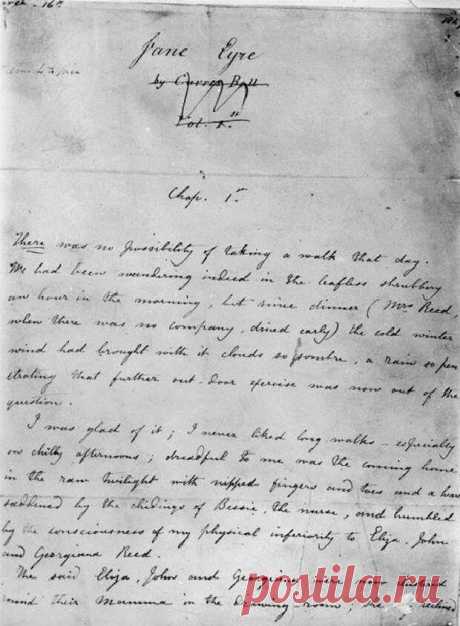 16th
Jane Eyre
by Currer Bell
Vol. 1.
Chap. 1st
There was no possibility of taking a walk that day.
We had been wandering indeed in the leafless shrubbery
an hour in the morning, but since dinner (Mrs Reed,
when there was no company, dined early) the cold winter
wind had brought with it clouds so sombre, a rain so pen
etrating that further out-door exercise was now out of the
question.
I was glad of it; I never liked long walks - especially
on chilly afternoons; dreadful to me was the coming home
in the raw twilight with nipped fingers and toes and a hear
saddened by the chidings of Bessie, the nurse, and humbled
by the consciousness of my physical inferiority to Eliza, John
and Georgiana Reed.
The said Eliza, John and Georgiana were now clustered
round their Mamma in the drawing-room; she lay reclined
postila.ru